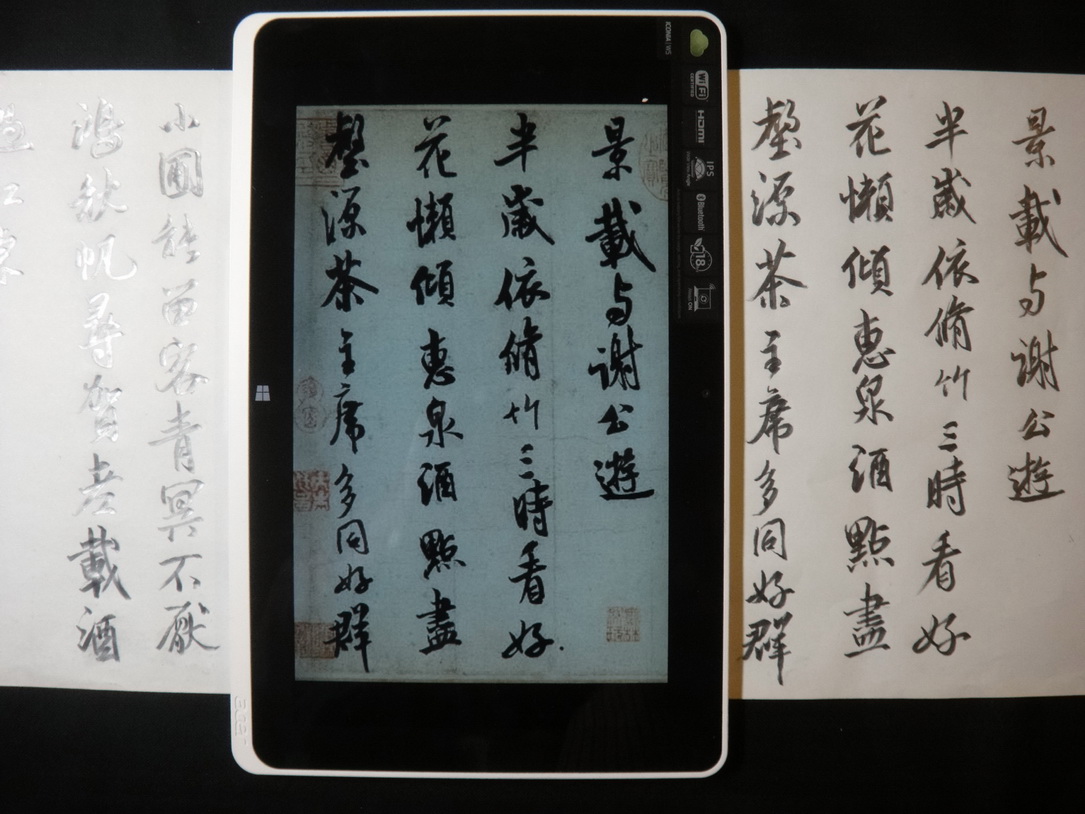 景載与謝公遊
半歲依脩竹三時看好
花懶傾惠泉酒點盡
壑源茶主席多同好群
景載与謝公遊
半歲依脩竹三時看好
花懶傾惠泉酒點盡
壑源茶主席多同好群
小圃能留客青冥不厭
鴻秋帆尋賀老載酒
過江東
ICONIA
Wi Fi
CERTIFIED
HDMI
IPS
Bluetooth